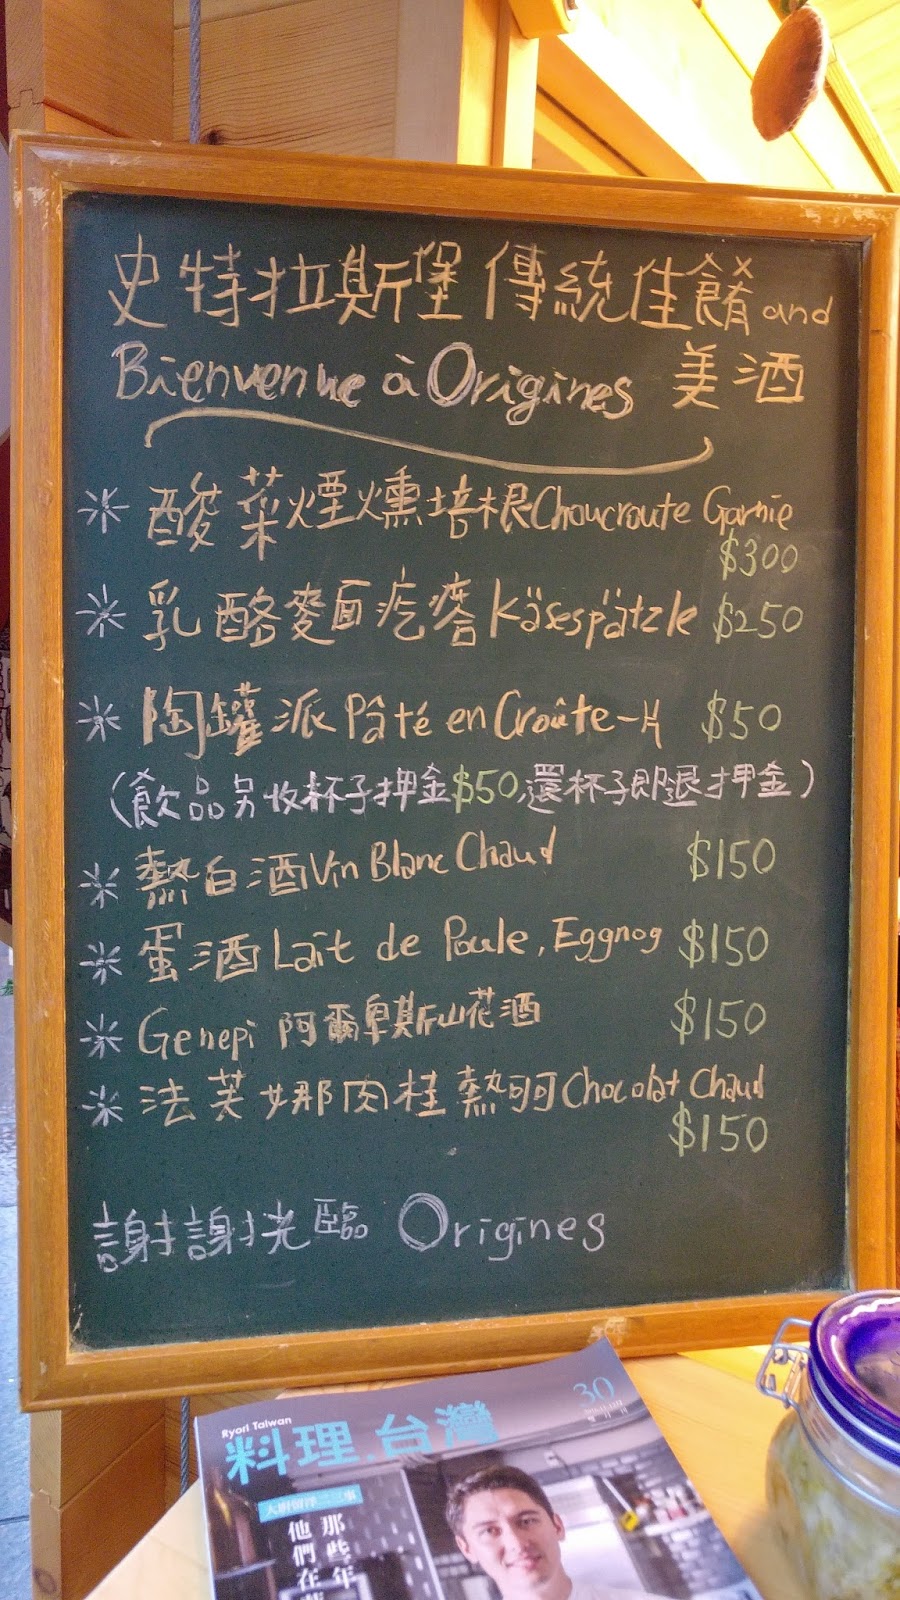 史特拉斯堡傳統佳餚and
Bienvenue à Origines 美酒
酸菜煙燻培根Choucroute Garnie
$300
乳酪麥面疙瘩Käsespätzle $250
陶罐派Pâté en Croûte-片 $50
(飲品另收杯子押金$50,還杯子即退押金)
熱白酒Vin Blanc Chaud $150
蛋酒Lait de Poule, Eggnog $150
Genepi 阿爾卑斯山花酒 $150
法芙娜肉桂熱可可Chocolat Chaud
$150
謝謝光臨 Origines
30
Ryori Taiwan
料理.台灣
那些年
他們在